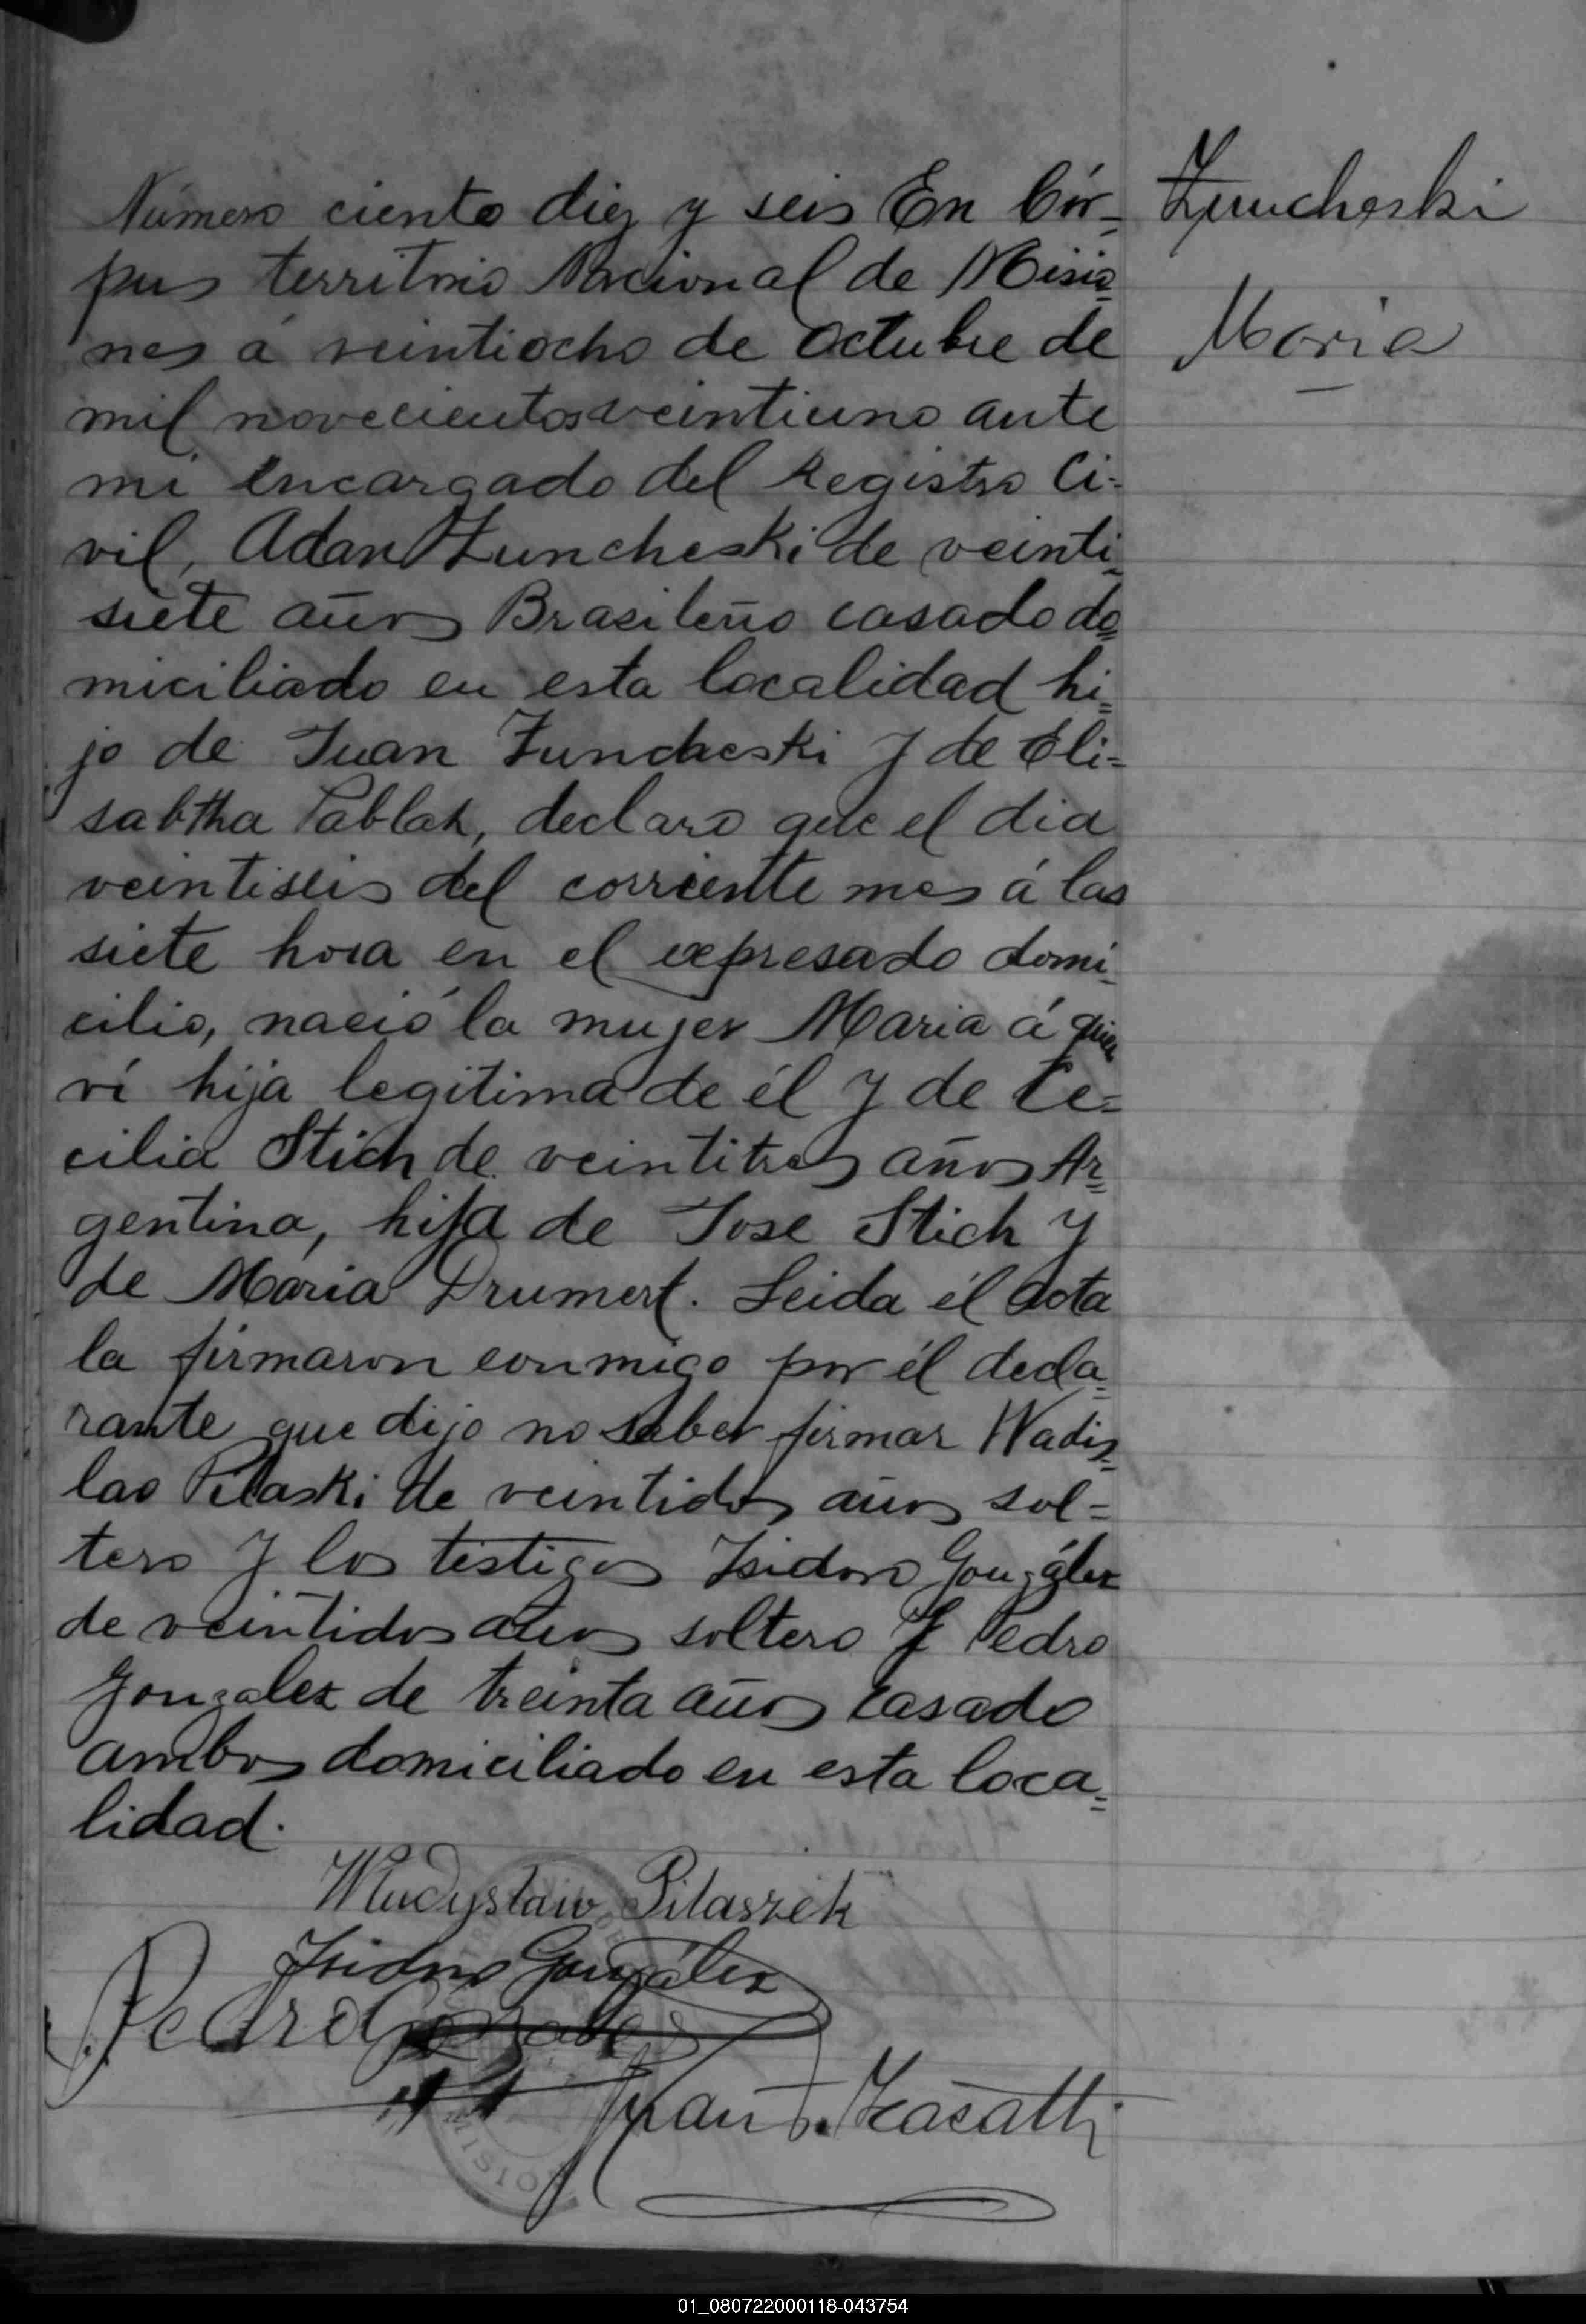 Número ciento diez y seis En Cór-
pus territorio Nacional de Misio
nes á veintiocho de Octubre de
mil novecientos veintiuno ante
mi encargado del Registro Ci-
vil, Adan Zuncheski de veinti
siete años Brasileño casado do
miciliado en esta localidad hi
jo de Juan Zuncheski y de Eli-
sabtha Pablak, declaro que el dia
veintiseis del corriente mes á las
siete hora en el expresado domi
cilio, nació la mujer Maria á quien
ví hija legitima de él y de Ce-
cilia Stich de veintitres años Ar
gentina, hija de Jose Stich y
de Maria Drumert. Leida él acta
la firmaron conmigo por él decla
rante que dijo no saber firmar Wadis
lao Pilaski de veintidos años sol-
tero y los testigos Isidoro González
de veintidos años soltero y Pedro
Gonzalez de treinta años casado
ambos domiciliado en esta loca
lidad.
Zuncheski
Maria
Władysław Pilaszek
Isidoro González
Pedro Gonzalez
Juan
01_080722000118-043754